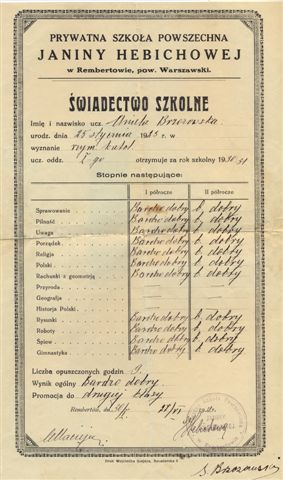 PRYWATNA SZKOŁA POWSZECHNA
JANINY HEBICHOWEJ
w Rembertowie, pow. Warszawski.
ŚWIADECTWO SZKOLNE
Imię i nazwisko ucz. Aniela Brzozowska
urodz. dnia 25 stycznia 1923 r. w
wyznanie rzym. katol.
ucz. oddz. I-go otrzymuje za rok szkolny 1930-31
Stopnie następujące:
I półrocze II półrocze
Sprawowanie Bardzo dobry b. dobry
Pilność Bardzo dobry b. dobry
Uwaga Bardzo dobry b. dobry
Porządek Bardzo dobry b. dobry
Religja Bardzo dobry b. dobry
Polski Bardzo dobry b. dobry
Rachunki z geometrją Bardzo dobry b. dobry
Przyroda
Geografja
Historja Polski
Rysunki Bardzo dobry b. dobry
Roboty Bardzo dobry b. dobry
Śpiew Bardzo dobry b. dobry
Gimnastyka Bardzo dobry b. dobry
Liczba opuszczonych godzin 9.
Wynik ogólny bardzo dobry
Promocja do drugiej klasy
Rembertów, d.
S. Brzozowski